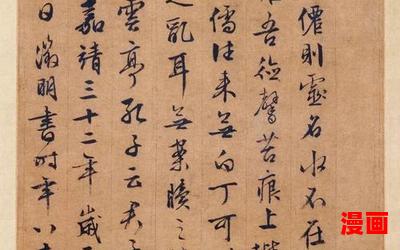 僊則靈名水不在
吾德馨苔痕上
儒往来無白丁可
亂耳無案牘之
雲亭孔子云君
嘉靖三十二年歲
日徵明書時年八十
漫画